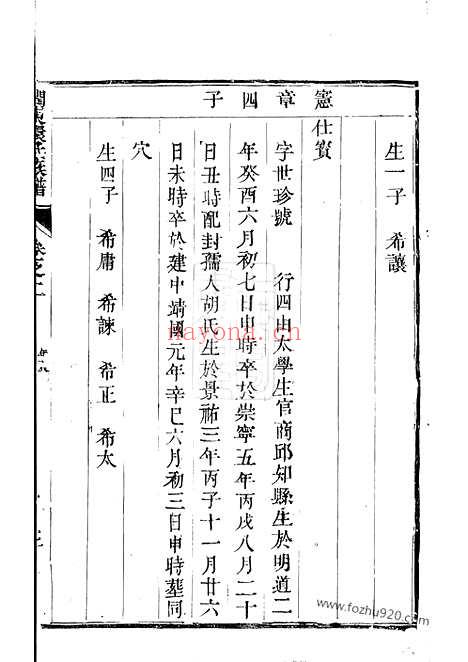 生一子 希讓
憲章四子
仕賓
字世珍號 行四由太學生官商邱知縣生於明道二
年癸酉六月初七日申時卒於崇寧五年丙戌八月二十
日丑時配封孺人胡氏生於景祐三年丙子十一月廿六
日未時卒於建中靖國元年辛巳六月初三日申時葬同
穴
生四子 希庸 希諫 希正 希太
nayona.cn
www.fozhu920.com